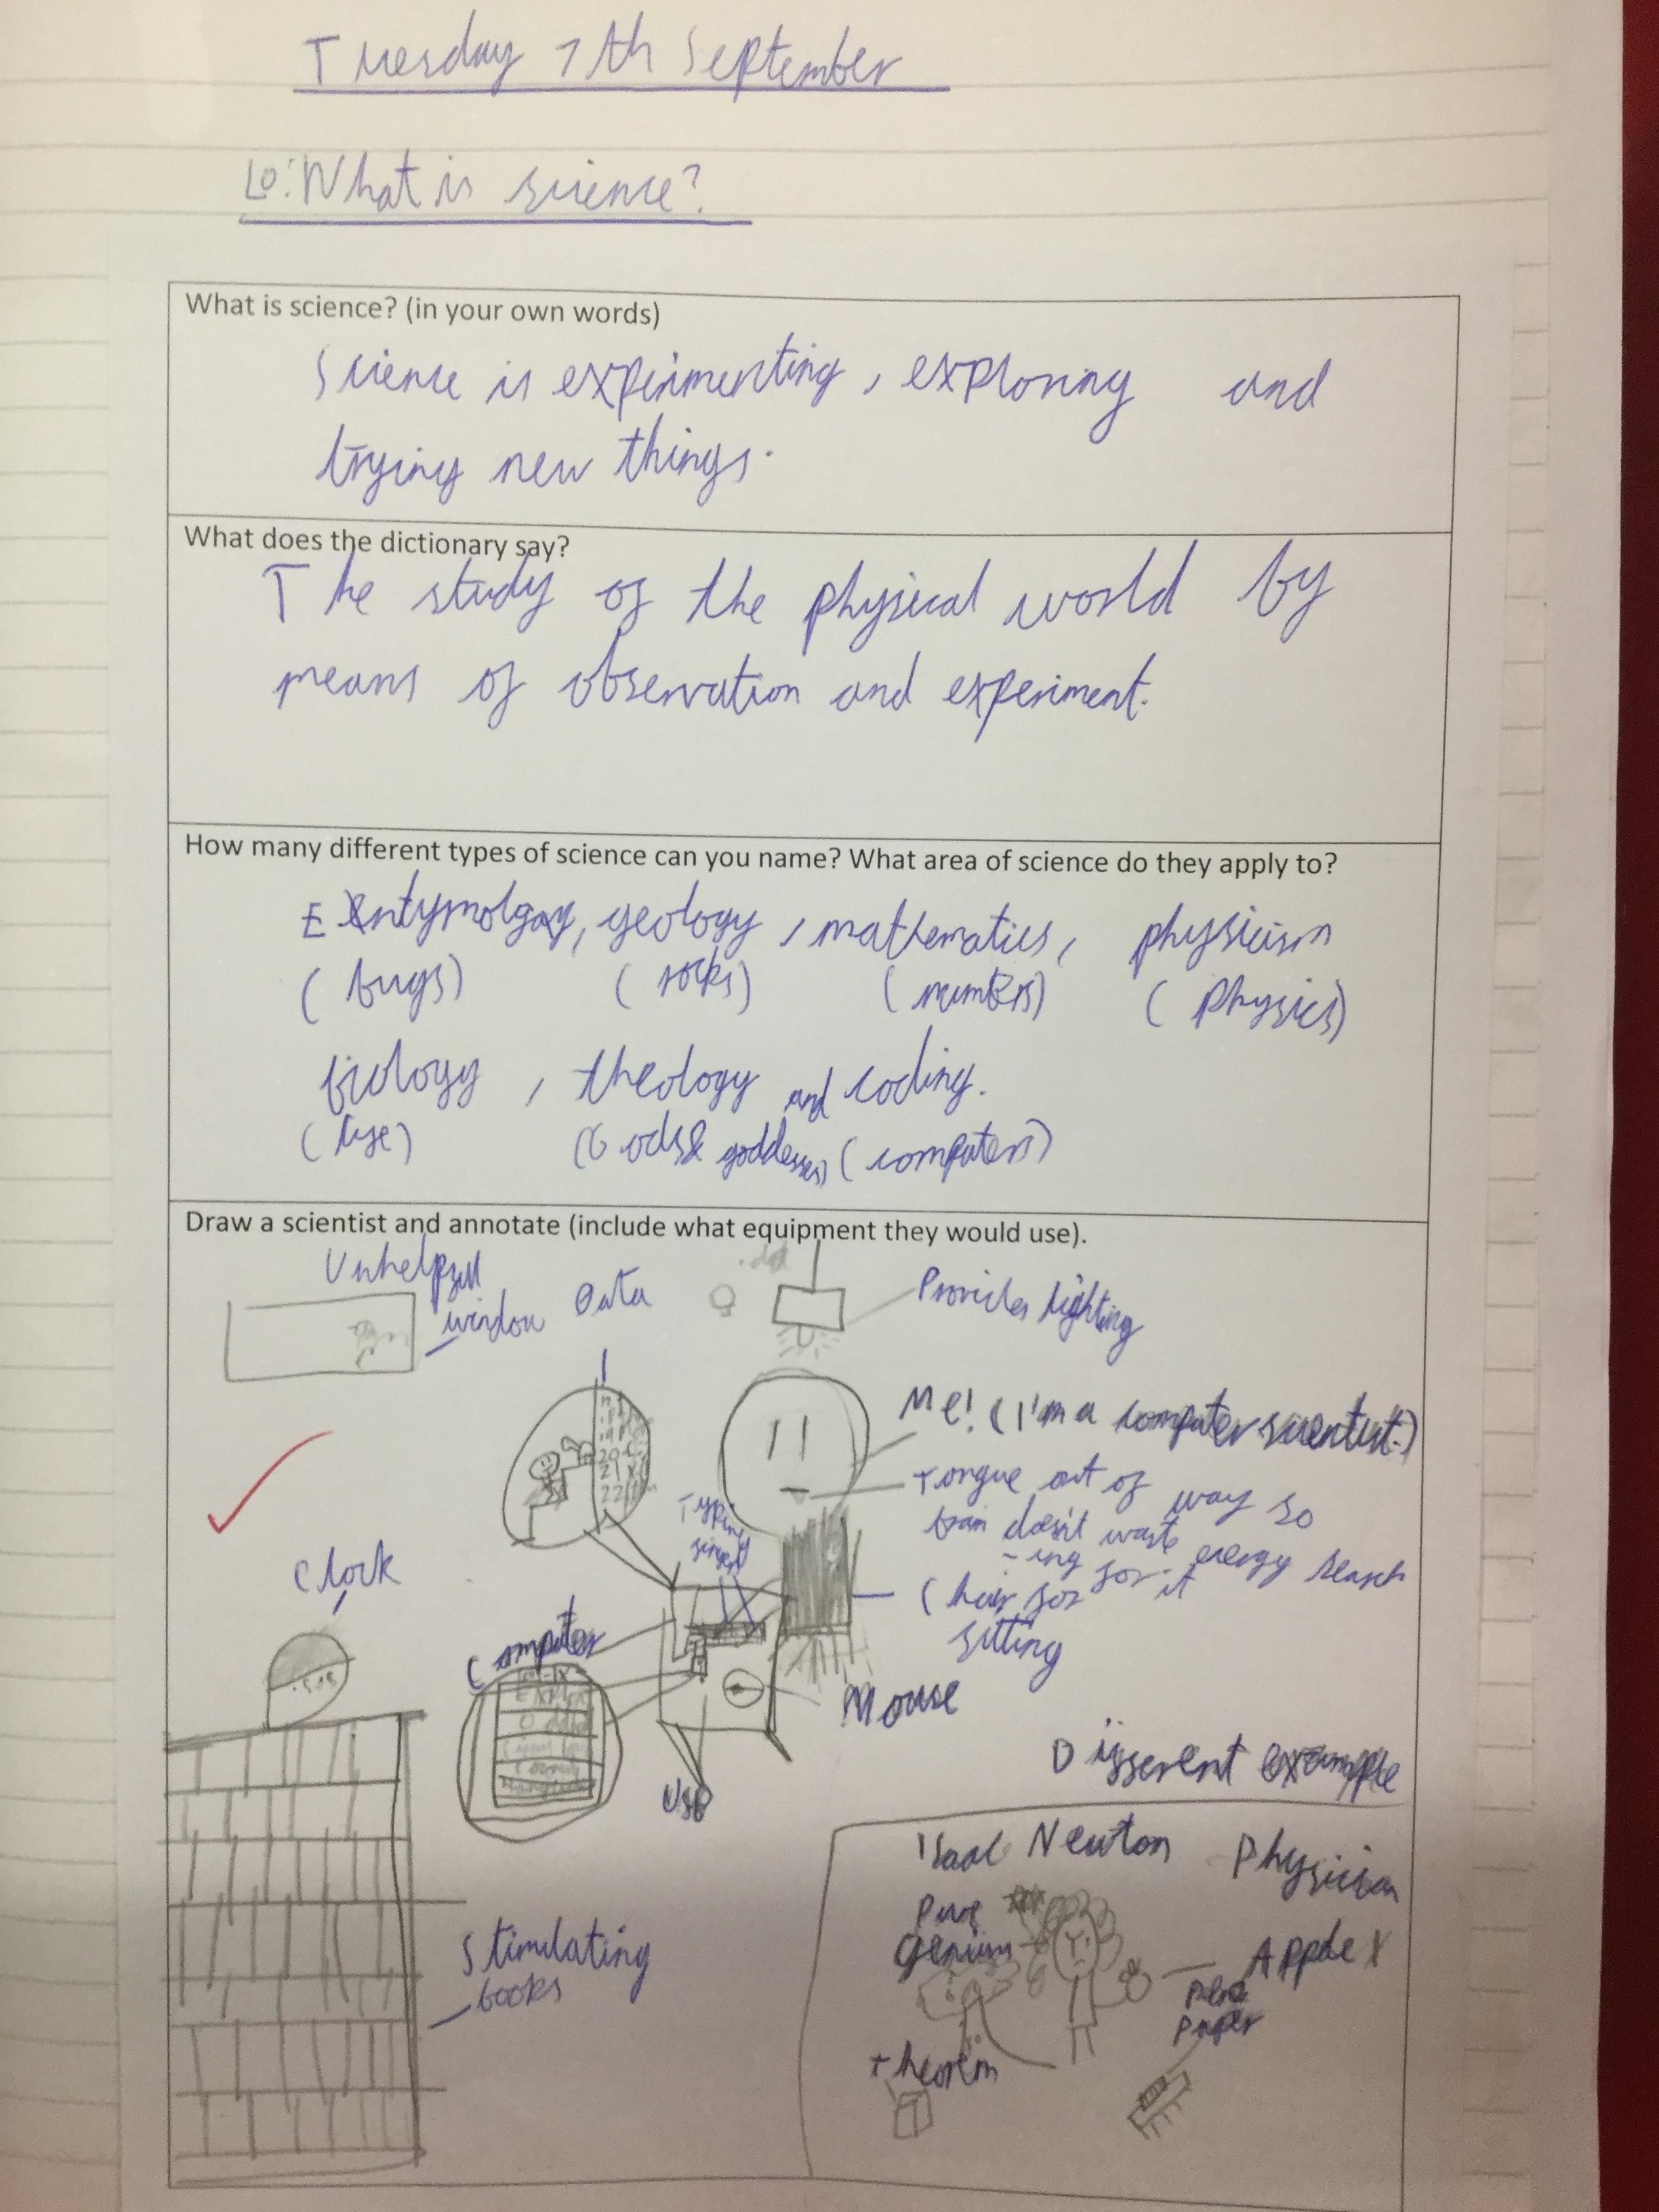 Tuesday 7th September
Lo: What is science?
What is science? (in your own words)
Science is experimenting, exploring and
trying new things.
What does the dictionary say?
The study of the physical world by
means of observation and experiment.
How many different types of science can you name? What area of science do they apply to?
Entymology, geology, mathematics, physicism
(bugs) (rocks) (numbers) (Physics)
biology, theology and coding.
(life) (Gods & goddesses) (computers)
Draw a scientist and annotate (include what equipment they would use).
Unhelpful
window
Data
Provides lighting
Me! (I'm a computer scientist.)
Tongue out of way so
brain doesn't waste energy search
-ing for it
Chair for
sitting
Typing
fingers
19
20
21
22
Clock
Computer
Mouse
USB
Different example
Isaac Newton Physician
Pure
Genium
Apple
Paper
Theorem
Stimulating
books